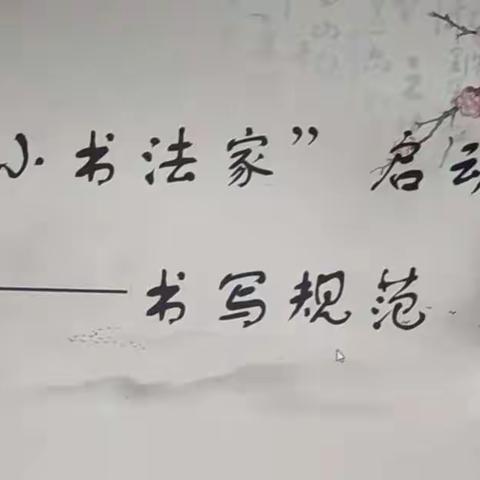 小书法家” 启动
——书写规范